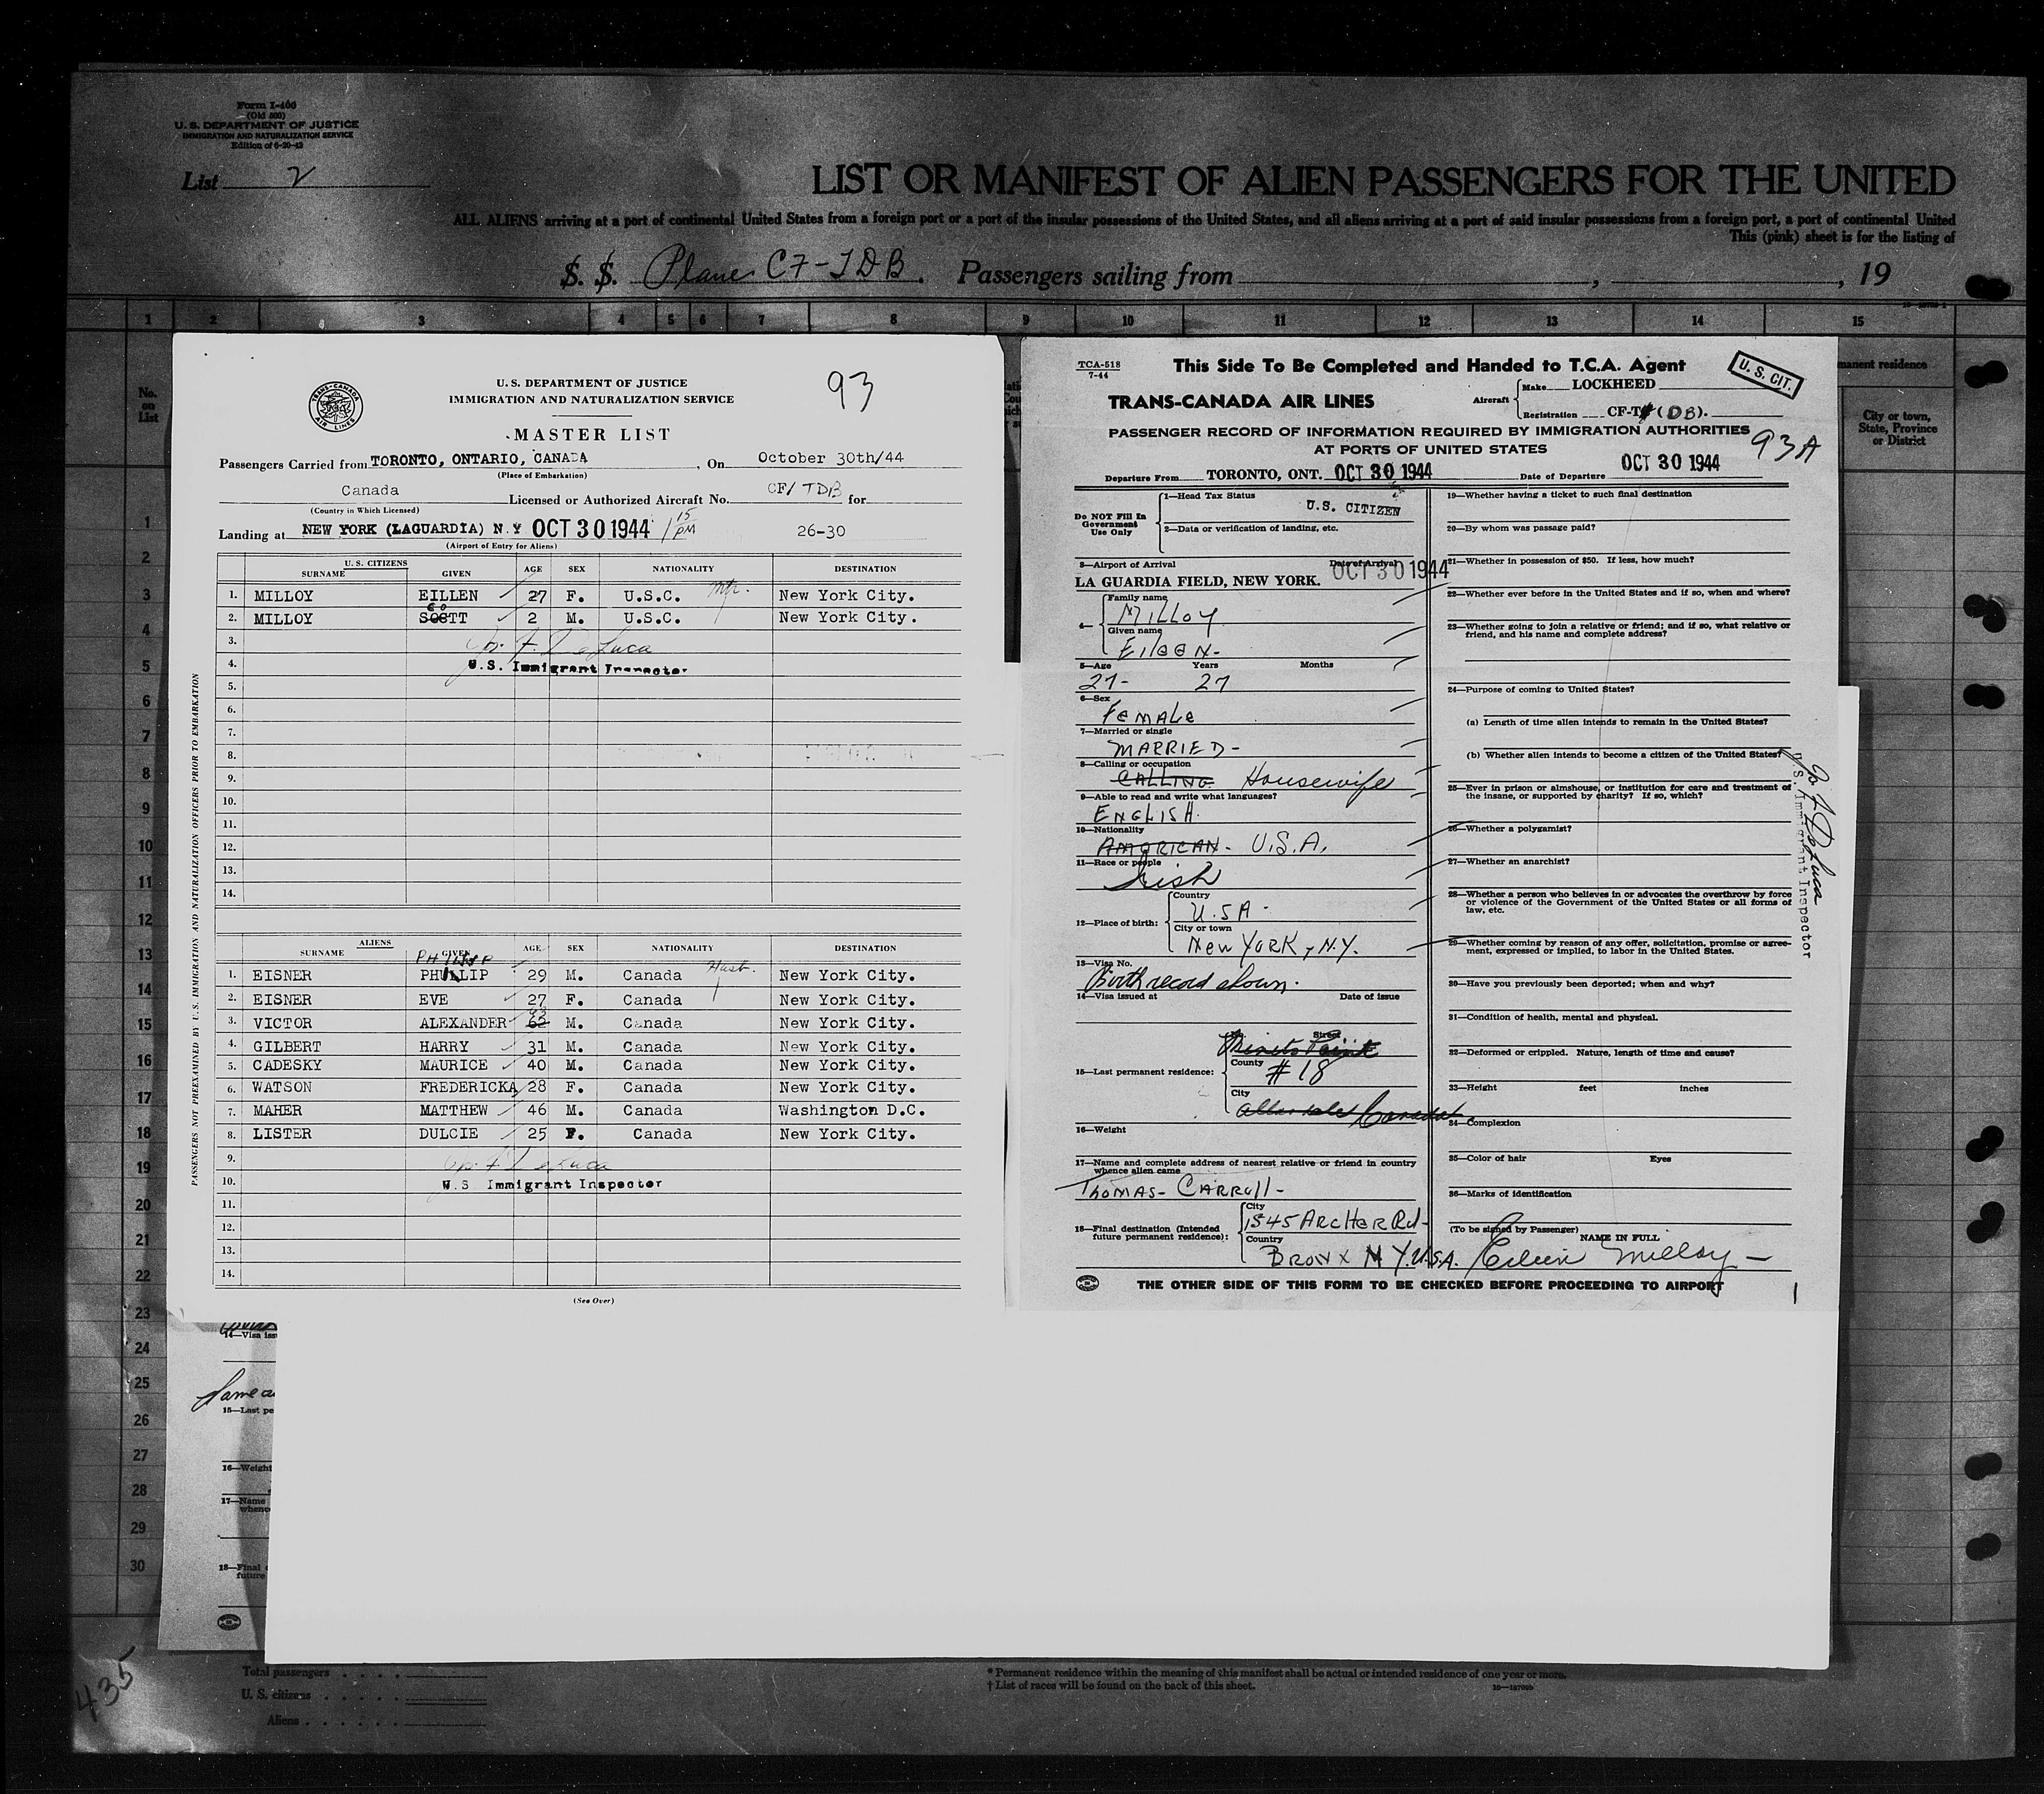 Form I-466
(Old 500)
U. S. DEPARTMENT OF JUSTICE
IMMIGRATION AND NATURALIZATION SERVICE
Edition of 6-20-43
List 2
LIST OR MANIFEST OF ALIEN PASSENGERS FOR THE UNITED
ALL ALIENS arriving at a port of continental United States from a foreign port or a port of the insular possessions of the United States, and all aliens arriving at a port of said insular possessions from a foreign port, a port of continental United
This (pink) sheet is for the listing of
S. S. Plane CF-TDB. Passengers sailing from , , 19
1 2 3 4 5 6 7 8 9 10 11 12 13 14 15
No. on List
manent residence
City or town, State, Province or District
1
2
3
4
5
6
7
8
9
10
11
12
13
14
15
16
17
18
19
20
21
22
23
24
25
26
27
28
29
30
TRANS-CANADA AIR LINES
U. S. DEPARTMENT OF JUSTICE
IMMIGRATION AND NATURALIZATION SERVICE
93
MASTER LIST
Passengers Carried from TORONTO, ONTARIO, CANADA , On October 30th/44
(Place of Embarkation)
Canada Licensed or Authorized Aircraft No. CF/ TDB for
(Country in Which Licensed)
Landing at NEW YORK (LAGUARDIA) N.Y OCT 30 1944 1 15 PM 26-30
(Airport of Entry for Aliens)
U. S. CITIZENS
SURNAME GIVEN AGE SEX NATIONALITY DESTINATION
1. MILLOY EILLEN 27 F. U.S.C. New York City.
2. MILLOY SCOTT 2 M. U.S.C. New York City.
3.
4. U.S. Immigrant Inspector
5.
6.
7.
8.
9.
10.
11.
12.
13.
14.
PASSENGERS NOT PREEXAMINED BY U.S. IMMIGRATION AND NATURALIZATION OFFICERS PRIOR TO EMBARKATION
ALIENS
SURNAME GIVEN AGE SEX NATIONALITY DESTINATION
PHILIP
1. EISNER PHILLIP 29 M. Canada Husb. New York City.
2. EISNER EVE 27 F. Canada New York City.
3. VICTOR ALEXANDER 62 M. Canada New York City.
4. GILBERT HARRY 31 M. Canada New York City.
5. CADESKY MAURICE 40 M. Canada New York City.
6. WATSON FREDERICKA 28 F. Canada New York City.
7. MAHER MATTHEW 46 M. Canada Washington D.C.
8. LISTER DULCIE 25 F. Canada New York City.
9.
10. U.S Immigrant Inspector
11.
12.
13.
14.
(See Over)
TCA-518
7-44
This Side To Be Completed and Handed to T.C.A. Agent
U. S. CIT.
TRANS-CANADA AIR LINES
Aircraft Make LOCKHEED
Registration CF-T (DB).
PASSENGER RECORD OF INFORMATION REQUIRED BY IMMIGRATION AUTHORITIES
AT PORTS OF UNITED STATES
93A
Departure From TORONTO, ONT. OCT 30 1944 Date of Departure OCT 30 1944
Do NOT Fill In Government Use Only
1—Head Tax Status
U.S. CITIZEN
2—Data or verification of landing, etc.
3—Airport of Arrival Date of Arrival
LA GUARDIA FIELD, NEW YORK. OCT 30 1944
4— Family name
MILLOY
Given name
EILEEN-
5—Age Years Months
27- 27
6—Sex
FEMALE
7—Married or single
MARRIED-
8—Calling or occupation
CALLING Housewife
9—Able to read and write what languages?
ENGLISH.
10—Nationality
AMERICAN- U.S.A.
11—Race or people
Irish
12—Place of birth: Country
U.S.A-
City or town
New YORK, N.Y.
13—Visa No.
Birth record shown.
14—Visa issued at Date of issue
15—Last permanent residence: Street
County
#18
City
Canada
16—Weight
17—Name and complete address of nearest relative or friend in country
whence alien came
THOMAS- CARROLL-
18—Final destination (Intended future permanent residence): City
1545 ARCHER Rd-
Country
BRONX N Y. U.S.A.
19—Whether having a ticket to such final destination
20—By whom was passage paid?
21—Whether in possession of $50. If less, how much?
22—Whether ever before in the United States and if so, when and where?
23—Whether going to join a relative or friend; and if so, what relative or
friend, and his name and complete address?
24—Purpose of coming to United States?
(a) Length of time alien intends to remain in the United States?
(b) Whether alien intends to become a citizen of the United States?
25—Ever in prison or almshouse, or institution for care and treatment of
the insane, or supported by charity? If so, which?
26—Whether a polygamist?
27—Whether an anarchist?
28—Whether a person who believes in or advocates the overthrow by force
or violence of the Government of the United States or all forms of
law, etc.
29—Whether coming by reason of any offer, solicitation, promise or agree-
ment, expressed or implied, to labor in the United States.
30—Have you previously been deported; when and why?
31—Condition of health, mental and physical.
32—Deformed or crippled. Nature, length of time and cause?
33—Height feet inches
34—Complexion
35—Color of hair Eyes
36—Marks of identification
(To be signed by Passenger)
NAME IN FULL
Eileen Milloy
THE OTHER SIDE OF THIS FORM TO BE CHECKED BEFORE PROCEEDING TO AIRPORT
U.S. Immigrant Inspector
14—Visa iss
Same as
15—Last pe
16—Weight
17—Name
whence
18—Final d
future
435
Total passengers
U. S. citizens
Aliens
* Permanent residence within the meaning of this manifest shall be actual or intended residence of one year or more.
† List of races will be found on the back of this sheet.